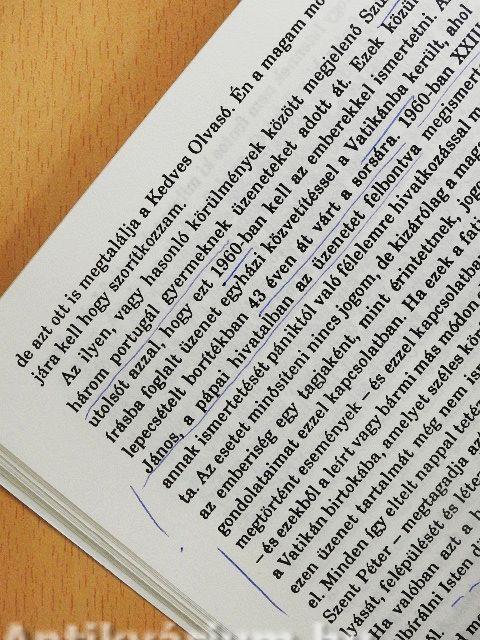 de azt ott is megtalálja a Kedves Olvasó. Én a magam mó
jára kell hogy szorítkozzam.
Az ilyen, vagy hasonló körülmények között megjelenő Szű
három portugál gyermeknek üzeneteket adott át. Ezek közül
utolsót azzal, hogy ezt 1960-ban kell az emberekkel ismertetni. A
írásba foglalt üzenet egyházi közvetítéssel a Vatikánba került, ahol
lepecsételt borítékban 43 éven át várt a sorsára 1960-ban XXIII
János, a pápai hivatalban az üzenetet felbontva megismert
annak ismertetését, pániktól való félelemre hivatkozással m
ta Az esetet minősíteni nincs jogom, de kizárólag a maga
az emberiség egy tagjaként, mint érintettnek, jogo
gondolataimat ezzel kapcsolatban. Ha ezek a fati
megtörtént események – és ezzel kapcsolatban
– és ezekből a leírt vagy bármi más módon
a Vatikán birtokába, amelyet széles kör
ezen üzenet tartalmát még nem ism
el. Minden így eltelt nappal teté
Szent Péter – megtagadja az
lyását, felépülését és léte
Ha valóban azt a
bírálni Isten d
Antikvárium.hu